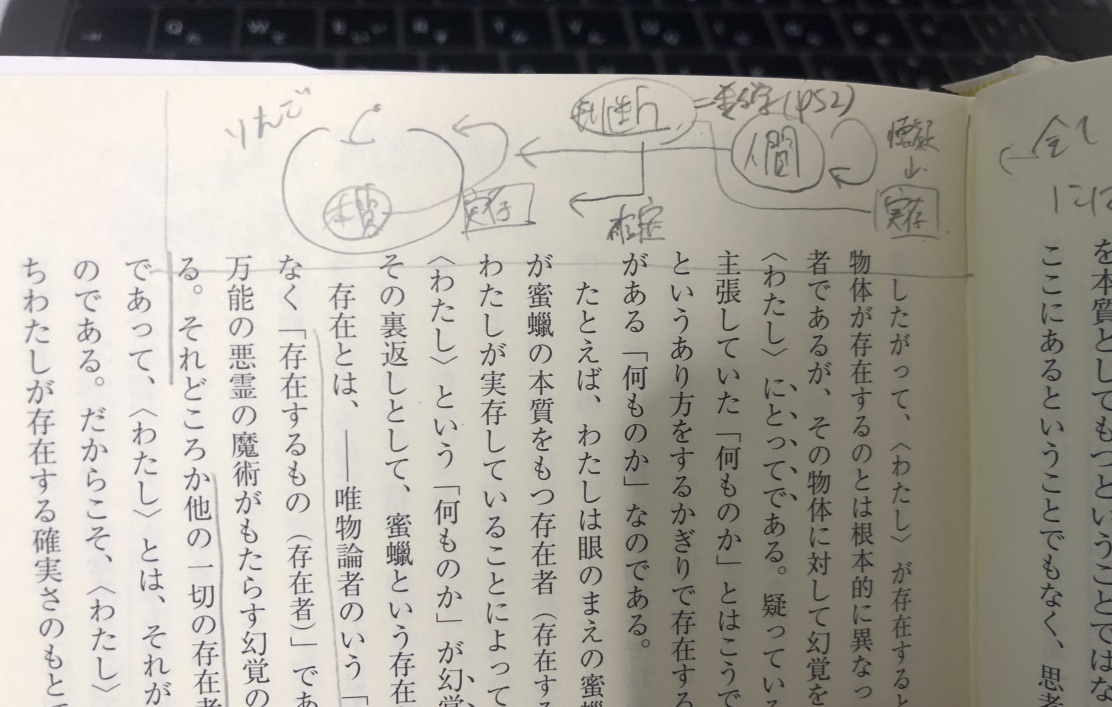 りんご
本質
実存
=数学(p52)
人間
実存
全て
を本質としてもつということではな
ここにあるということでもなく、思考
したがって、〈わたし〉が存在すると
物体が存在するのとは根本的に異なっ
者であるが、その物体に対して幻覚を
〈わたし〉にとってである。疑ってい
主張していた「何ものか」とはこうで
というあり方をするかぎりで存在する
がある「何ものか」なのである。
たとえば、わたしは眼のまえの蜜蠟
が蜜蠟の本質をもつ存在者（存在する
わたしが実存していることによって
〈わたし〉という「何ものか」が、幻覚
その裏返しとして、蜜蠟という存在
存在とは、――唯物論者のいう「
なく「存在するもの（存在者）」であ
万能の悪霊の魔術がもたらす幻覚の
る。それどころか他の一切の存在者
であって、〈わたし〉とは、それが
のである。だからこそ、〈わたし〉
ちわたしが存在する確実さのもと